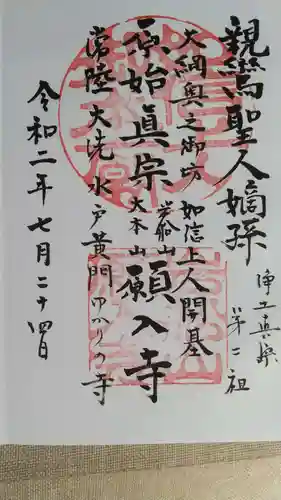 親鸞聖人嫡孫
浄土真宗
第二祖
大綱奥之御坊 如信上人開基
原始真宗
大本山
岩船山
願入寺
常陸大洗水戸黄門ゆかりの寺
令和二年七月二十四日